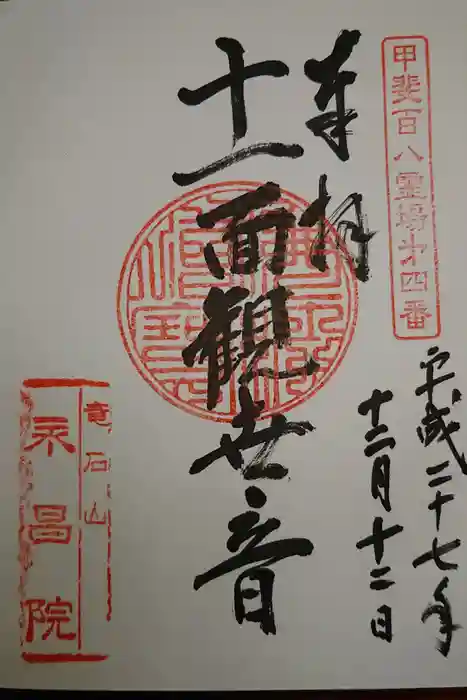 甲斐百八霊場第四番
奉拝
十一面観世音
平成二十七年
十二月十二日
竜石山
永昌院